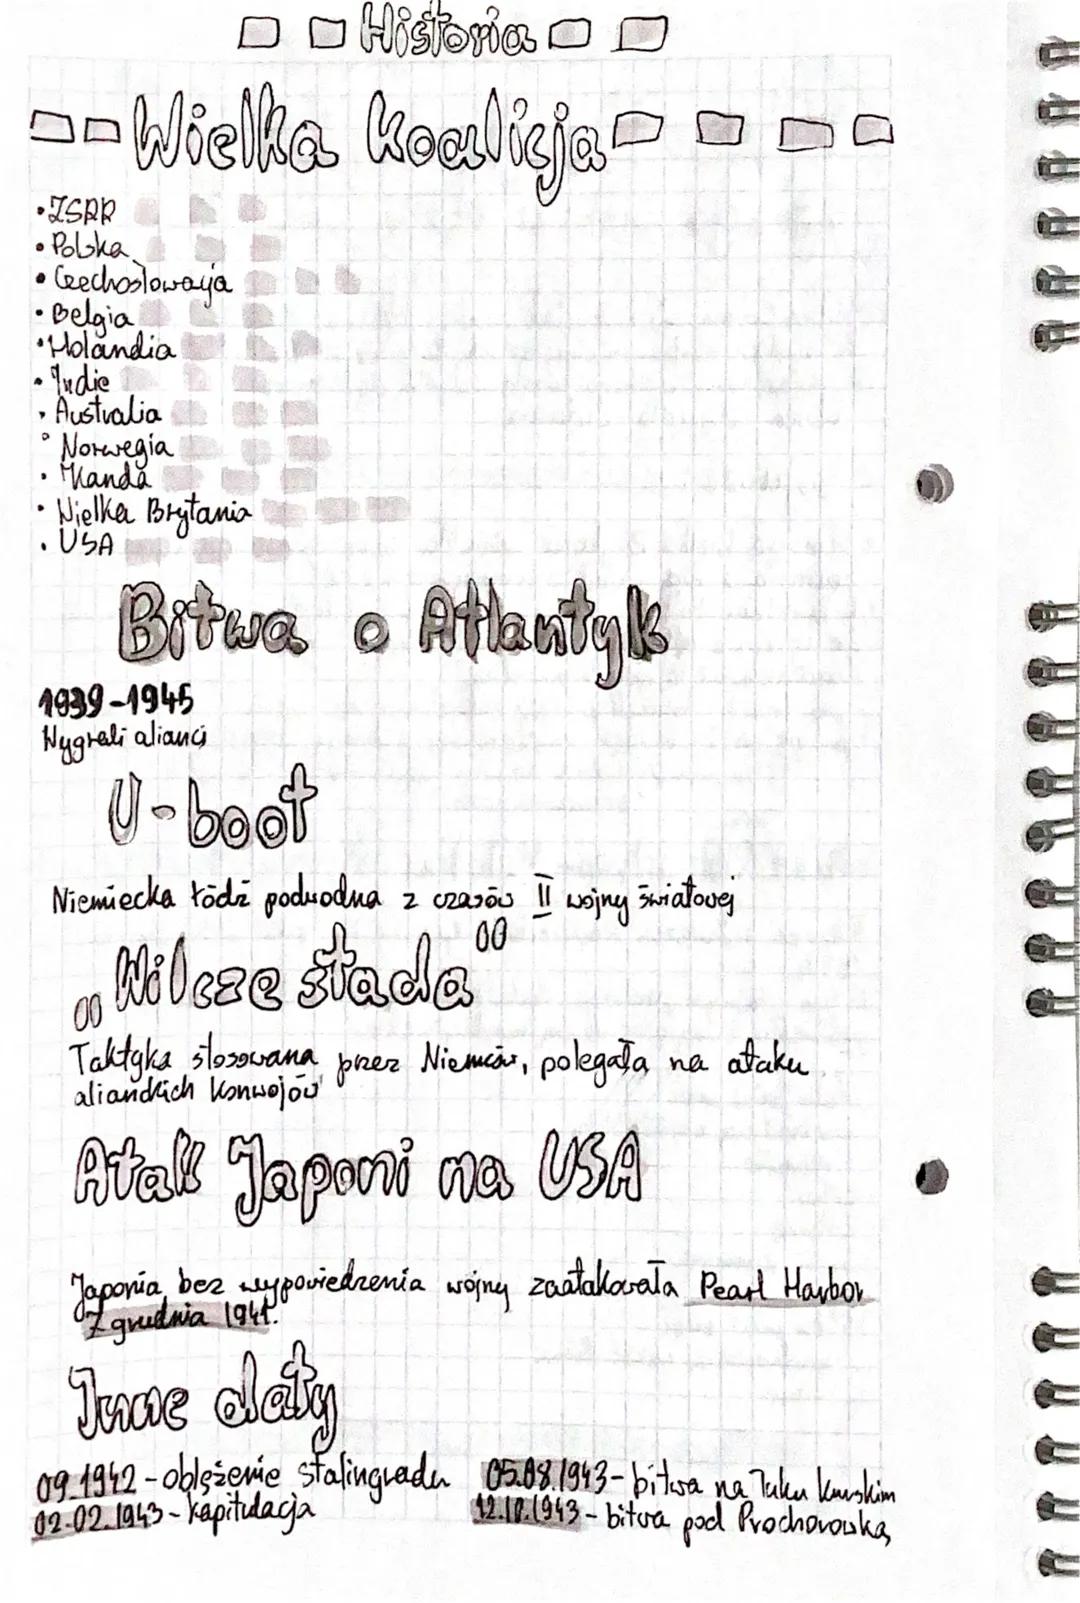 Historia
Wielka Koalicja
• ZSRR
• Polska
• Czechosłowacja
• Belgia
• Holandia
• Indie
• Australia
• Norwegia
• Kanda
• Wielka Brytania
• USA
Bitwa o Atlantyk
1939-1945
Wygrali alianci
U-boot
Niemiecka łódź podwodna z czasów II wojny światowej
„Wilcze stada"
Taktyka stosowana przez Niemców, polegała na ataku
aliandkich konwojów
Atak Japoni na USA
Japonia bez wypowiedzenia wojny zaatakowała Pearl Harbor
7 grudnia 1941.
Inne daty
09.1942 - oblężenie stalingradu 05.08.1943 - bitwa na łuku kurskim
02.02.1943 - kapitulacja - bitwa pod Prochorowką